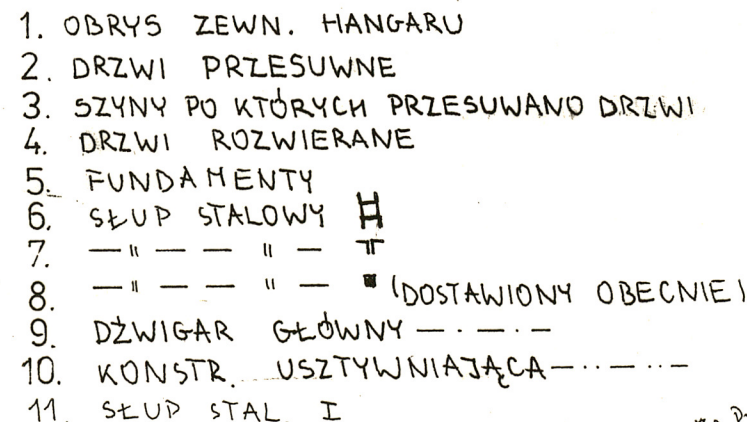 1. OBRYS ZEWN. HANGARU
2. DRZWI PRZESUWNE
3. SZYNY PO KTÓRYCH PRZESUWANO DRZWI
4. DRZWI ROZWIERANE
5. FUNDAMENTY
6. SŁUP STALOWY
7. — " — — " —
8. — " — — " — (DOSTAWIONY OBECNIE)
9. DŹWIGAR GŁÓWNY — . — . —
10. KONSTR. USZTYWNIAJĄCA — .. — .. —
11. SŁUP STAL I